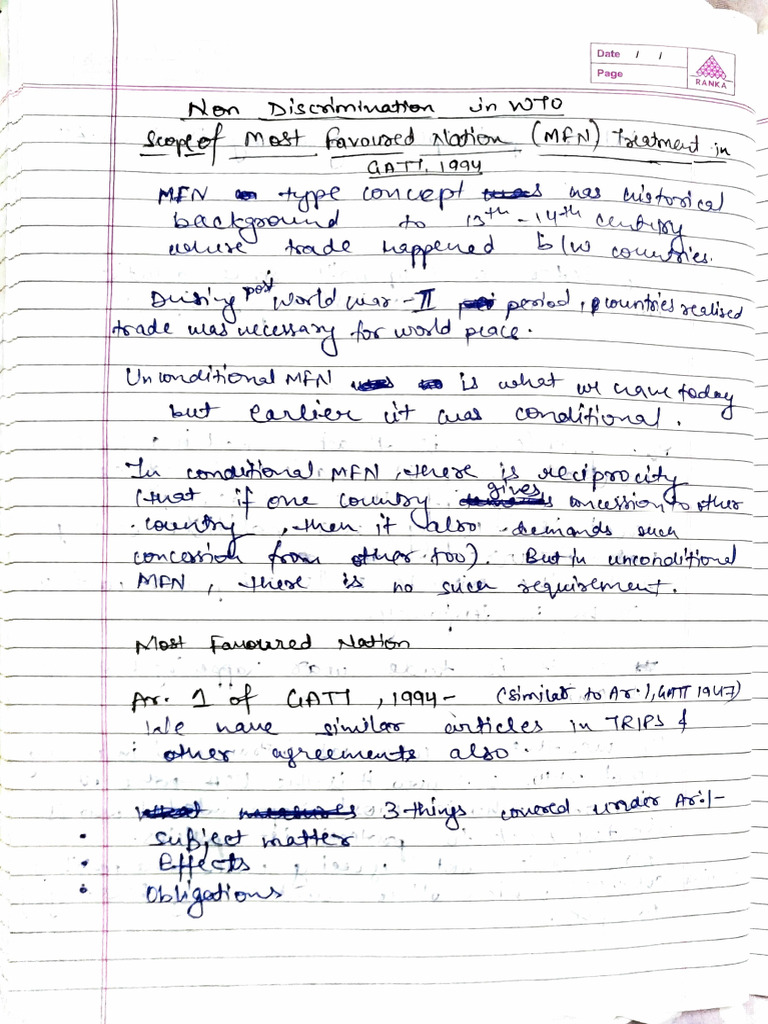 Date / /
Page
RANKA
Non Discrimination in WTO
Scope of Most Favoured Nation (MFN) Treatment in
GATT, 1994
MFN type concept has historical
background to 13th - 14th century
where trade happened b/w countries.
During post World War - II period, countries realised
trade was necessary for world peace.
Unconditional MFN is what we have today
but earlier it was conditional.
In conditional MFN, there is reciprocity
(that if one country gives concession to other
country, then it also demands such
concession from other too). But in unconditional
MFN, there is no such requirement.
Most Favoured Nation
Ar. 1 of GATT, 1994 - (similar to Ar. 1, GATT 1947)
We have similar articles in TRIPS &
other agreements also.
3 things covered under Ar. 1 -
• Subject matter
• Effects
• Obligations